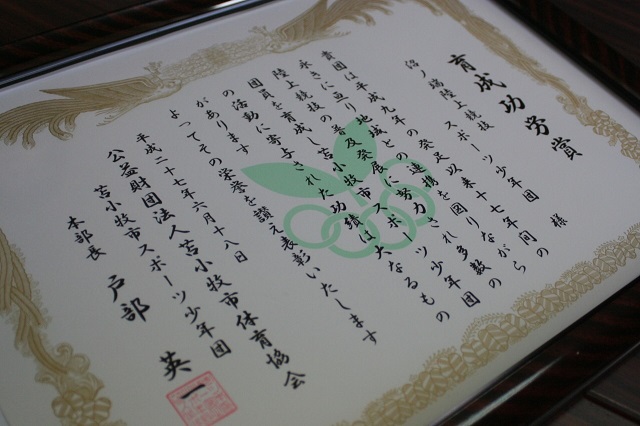 育成功労賞
沼ノ端陸上競技
スポーツ少年団 様
貴団は平成九年の発足以来十七年間の
永きに亘り地域との連携を図りながら
陸上競技の普及発展に努力され多数の
団員を育成し苫小牧市スポーツ少年団
の活動に寄与された功績は大なるもの
があります
よってその栄誉を讃え表彰いたします
平成二十七年六月十八日
公益財団法人苫小牧市体育協会
苫小牧市スポーツ少年団
本部長 戸部 英一